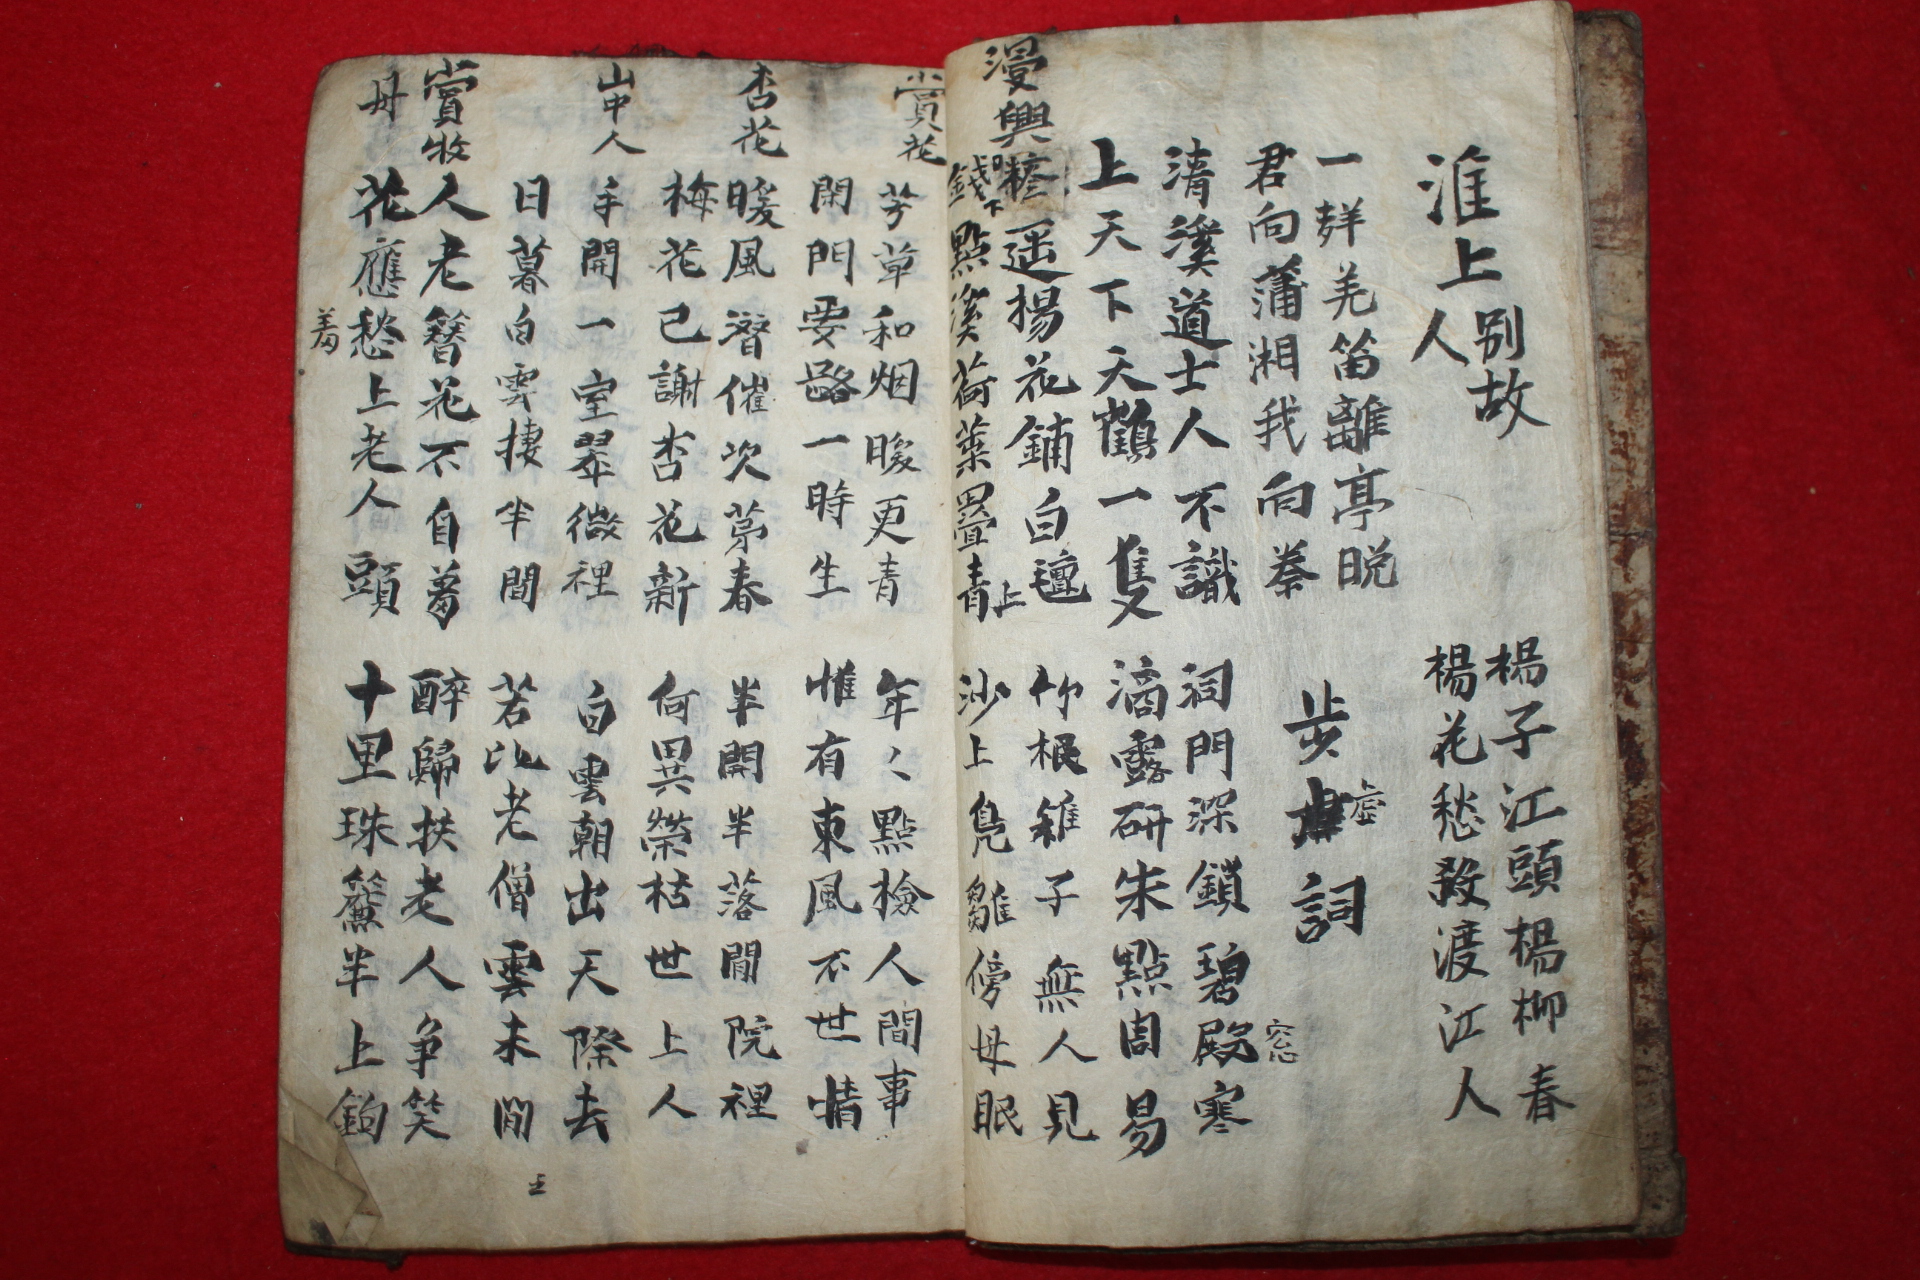 淮上別故人
楊子江頭楊柳春
楊花愁殺渡江人
一聲羌笛離亭晩
君向蒲湘我向秦
步虛詞
清溪道士人不識
上天下天鶴一隻
洞門深鎖碧殿寒
窓
滴露研朱點周易
漫興
糝逕揚花鋪白氈
點溪荷葉疊青錢
上
下
竹根稚子無人見
沙上鳧雛傍母眠
賞花
芳草和烟暖更青
閑門要路一時生
年々點檢人間事
惟有東風不世情
杏花
暖風潛催次苐春
梅花已謝杏花新
半開半落閒院裡
何異榮枯世上人
山中人
手開一室翠微裡
日暮白雲捿半間
白雲朝出天際去
若比老僧雲未閒
賞牧丹
人老簪花不自羞
花應愁上老人頭
羞
醉歸扶老人爭笑
十里珠簾半上鉤